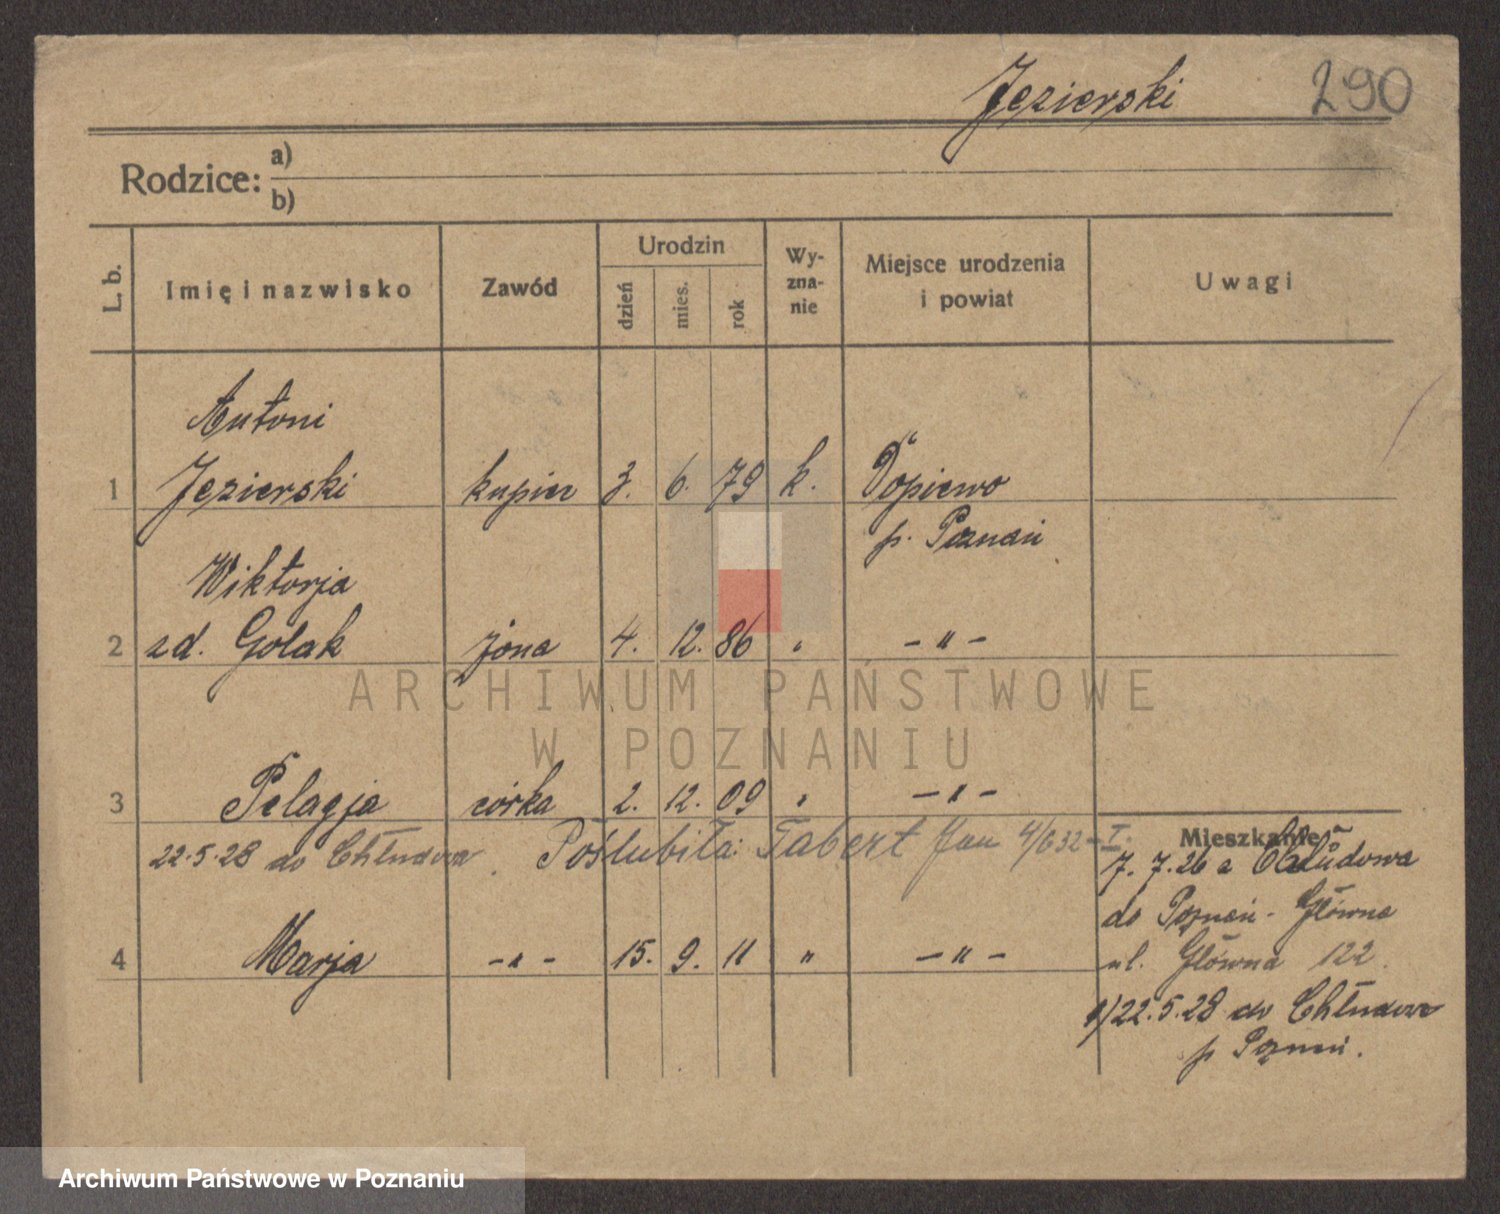 Jezierski 290
Rodzice: a)
b)
L. b. Imię i nazwisko Zawód Urodzin dzień mies. rok Wy-zna-nie Miejsce urodzenia i powiat Uwagi
Antoni
1 Jezierski kupiec 3. 6. 79 k. Dopiewo
p. Poznań
Wiktorja
2 zd. Golak żona 4. 12. 86 " – " –
3 Pelagja córka 2. 12. 09 " – " –
22.5.28 do Chłudowa. Poślubiła: Tabert Jan 4/6 32 – I.
4 Marja – " – 15. 9. 11 " – " –
Mieszkanie
7. 7. 26 z Chłudowa
do Poznań - Główna
ul. Główna 122.
1/22.5.28 do Chłudowa
p Poznań.
ARCHIWUM PAŃSTWOWE
W POZNANIU
Archiwum Państwowe w Poznaniu